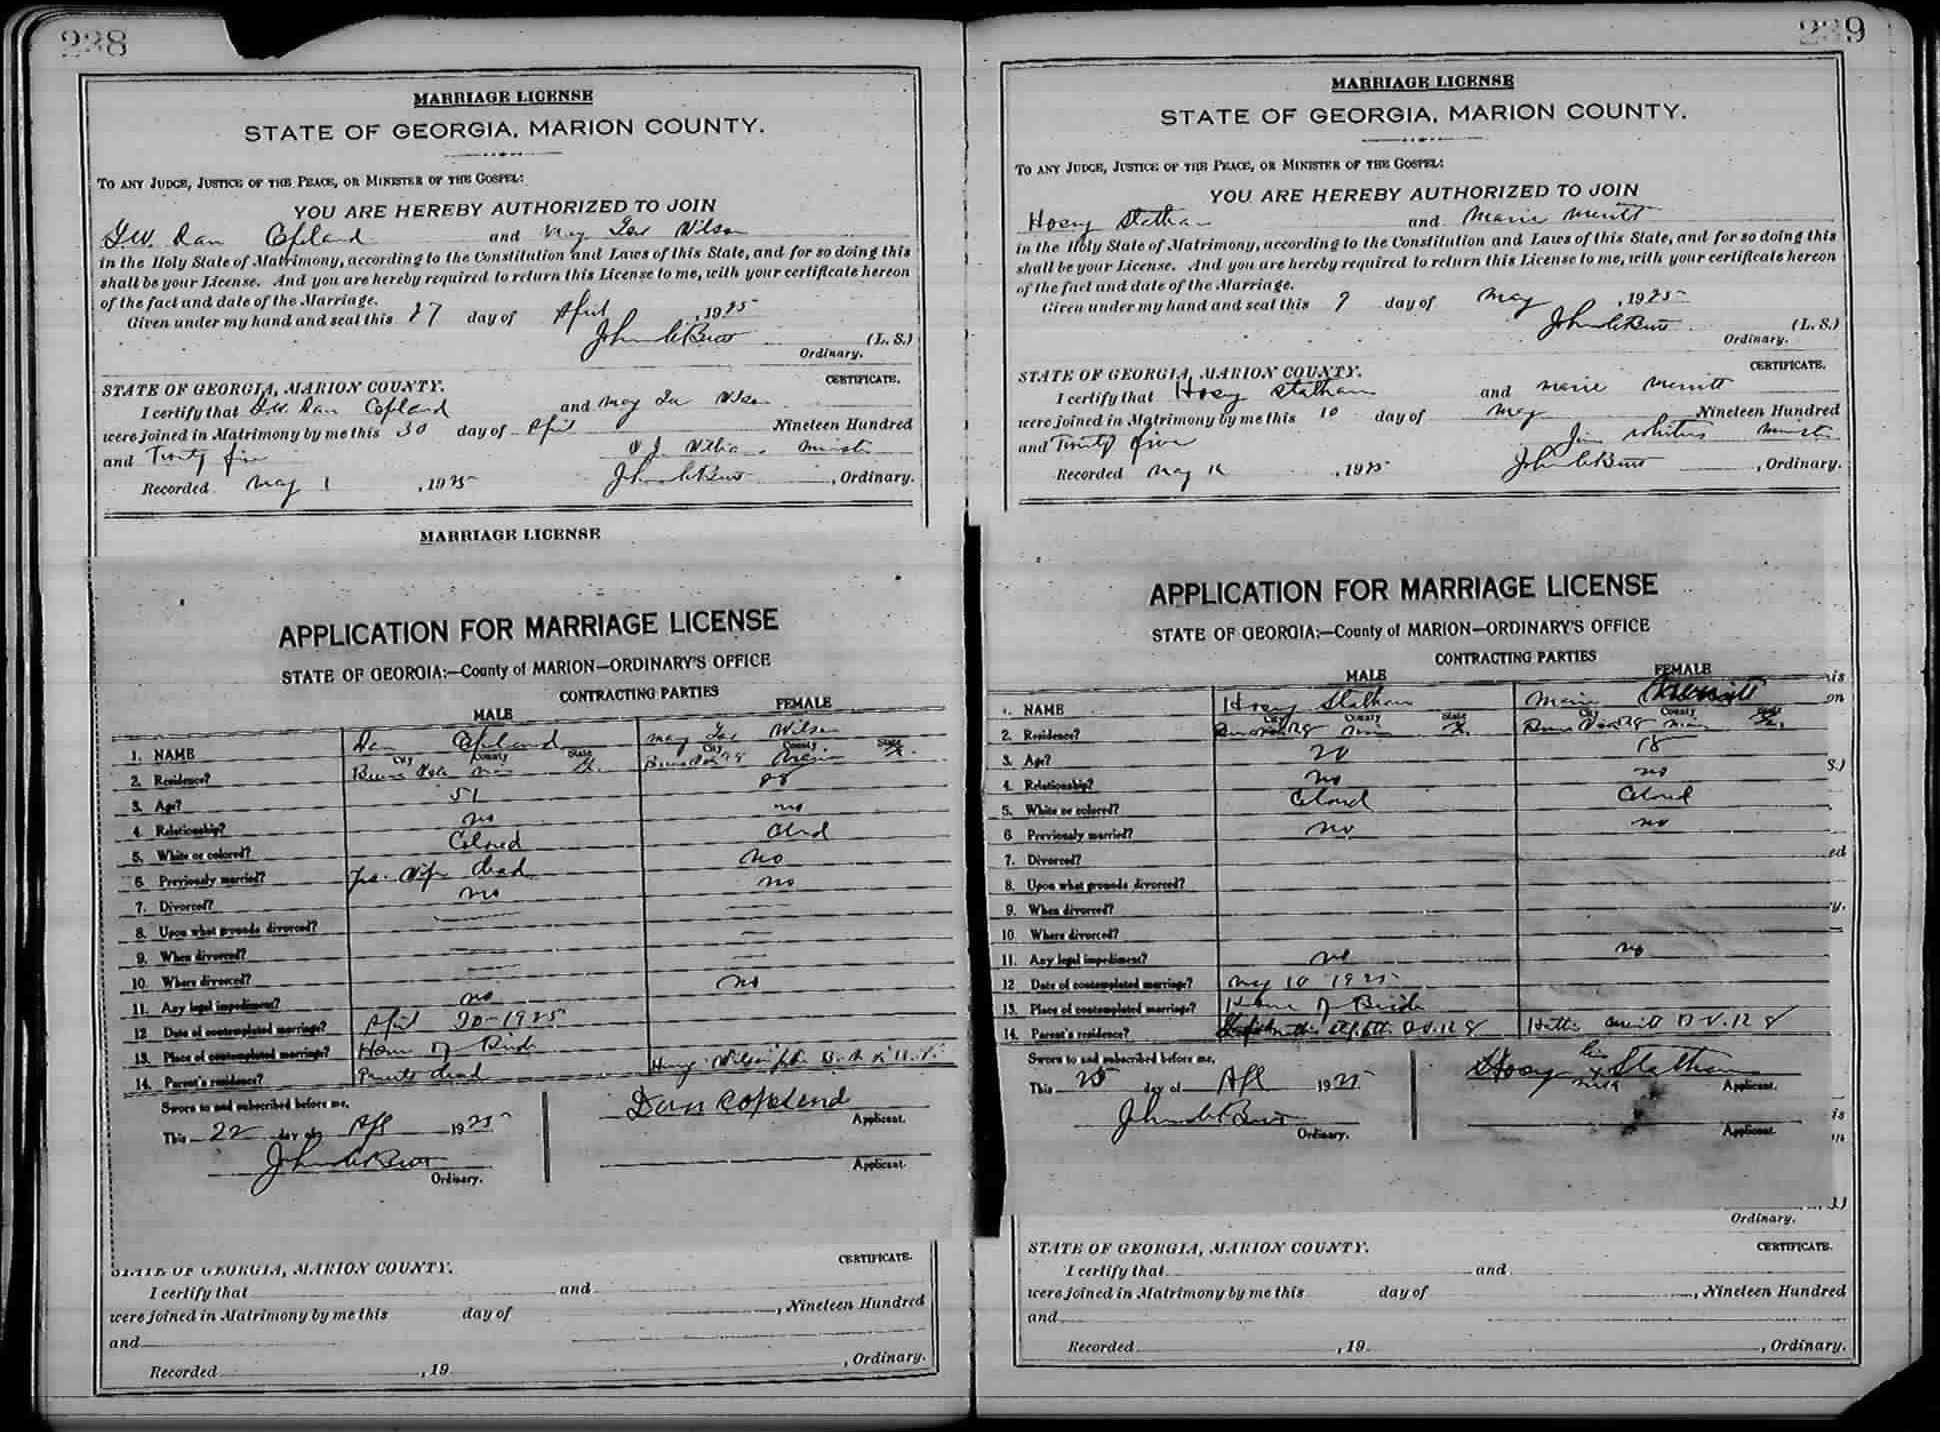 238
MARRIAGE LICENSE
STATE OF GEORGIA, MARION COUNTY.
TO ANY JUDGE, JUSTICE OF THE PEACE, OR MINISTER OF THE GOSPEL:
YOU ARE HEREBY AUTHORIZED TO JOIN
Dan Copland and May Wilson
in the Holy State of Matrimony, according to the Constitution and Laws of this State, and for so doing this
shall be your License. And you are hereby required to return this License to me, with your certificate hereon
of the fact and date of the Marriage.
Given under my hand and seal this 27 day of April, 1925
(L. S.)
Ordinary.
CERTIFICATE.
STATE OF GEORGIA, MARION COUNTY.
I certify that Dan Copland and May Wilson
were joined in Matrimony by me this 30 day of April Nineteen Hundred
and Twenty five Minister
Recorded May 1, 1925 , Ordinary.
MARRIAGE LICENSE
APPLICATION FOR MARRIAGE LICENSE
STATE OF GEORGIA:—County of MARION—ORDINARY'S OFFICE
CONTRACTING PARTIES
MALE FEMALE
1. NAME Dan Copland May Wilson
City County State City County State
2. Residence? Buena Vista Marion
3. Age? 51
4. Relationship? no no
5. White or colored? Colored Clrd
6. Previously married? Yes. Wife dead no
7. Divorced? no no
8. Upon what grounds divorced?
9. When divorced?
10. Where divorced?
11. Any legal impediment? no no
12 Date of contemplated marriage? April 30-1925
13. Place of contemplated marriage? Home of Bride
14. Parent's residence? Parents dead
Sworn to and subscribed before me,
This 22 day of Apl 1925
Dan Copelend
Applicant.
Ordinary.
Applicant.
STATE OF GEORGIA, MARION COUNTY.
CERTIFICATE.
I certify that and
were joined in Matrimony by me this day of , Nineteen Hundred
and
Recorded , 19 , Ordinary.
239
MARRIAGE LICENSE
STATE OF GEORGIA, MARION COUNTY.
TO ANY JUDGE, JUSTICE OF THE PEACE, OR MINISTER OF THE GOSPEL:
YOU ARE HEREBY AUTHORIZED TO JOIN
Hosey Statham and Marie Merritt
in the Holy State of Matrimony, according to the Constitution and Laws of this State, and for so doing this
shall be your License. And you are hereby required to return this License to me, with your certificate hereon
of the fact and date of the Marriage.
Given under my hand and seal this 9 day of May, 1925
(L. S.)
Ordinary.
CERTIFICATE.
STATE OF GEORGIA, MARION COUNTY.
I certify that Hosey Statham and Marie Merritt
were joined in Matrimony by me this 10 day of May Nineteen Hundred
and Twenty five Jim Minister
Recorded May, 1925 , Ordinary.
APPLICATION FOR MARRIAGE LICENSE
STATE OF GEORGIA:—County of MARION—ORDINARY'S OFFICE
CONTRACTING PARTIES
MALE FEMALE
1. NAME Hosey Statham Marie Merritt
City County State City County State
2. Residence?
3. Age? 20 18
4. Relationship? no no
5. White or colored? Colored Colored
6 Previously married? no no
7. Divorced?
8. Upon what grounds divorced?
9. When divorced?
10 Where divorced?
11. Any legal impediment? no no
12 Date of contemplated marriage? May 10 1925
13. Place of contemplated marriage? Home of Bride
14. Parent's residence?
Sworn to and subscribed before me,
This 25 day of Apl 1925
Hosey his X mark Statham
Applicant.
Ordinary.
Applicant.
Ordinary.
STATE OF GEORGIA, MARION COUNTY.
CERTIFICATE.
I certify that and
were joined in Matrimony by me this day of , Nineteen Hundred
and
Recorded , 19 , Ordinary.